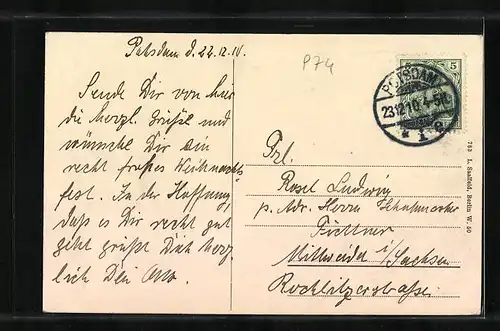 Potsdam d. 22.12.10.
P74
Sende Dir von hier
die herzl. Grüße und
wünsche Dir ein
recht frohes Weihnachts
fest. In der Hoffnung
daß es Dir recht gut
geht grüßt Dich herz
lich Dein Otto.
5
POTSDAM
23.12.10. 4-5N.
* 1 g
Frl.
Rosel Ludwig
p. Adr. Herrn Schuhmacher
Fichtner
Mittweida i/Sachsen
Rochlitzerstraße
763 L. Saalfeld, Berlin W. 50